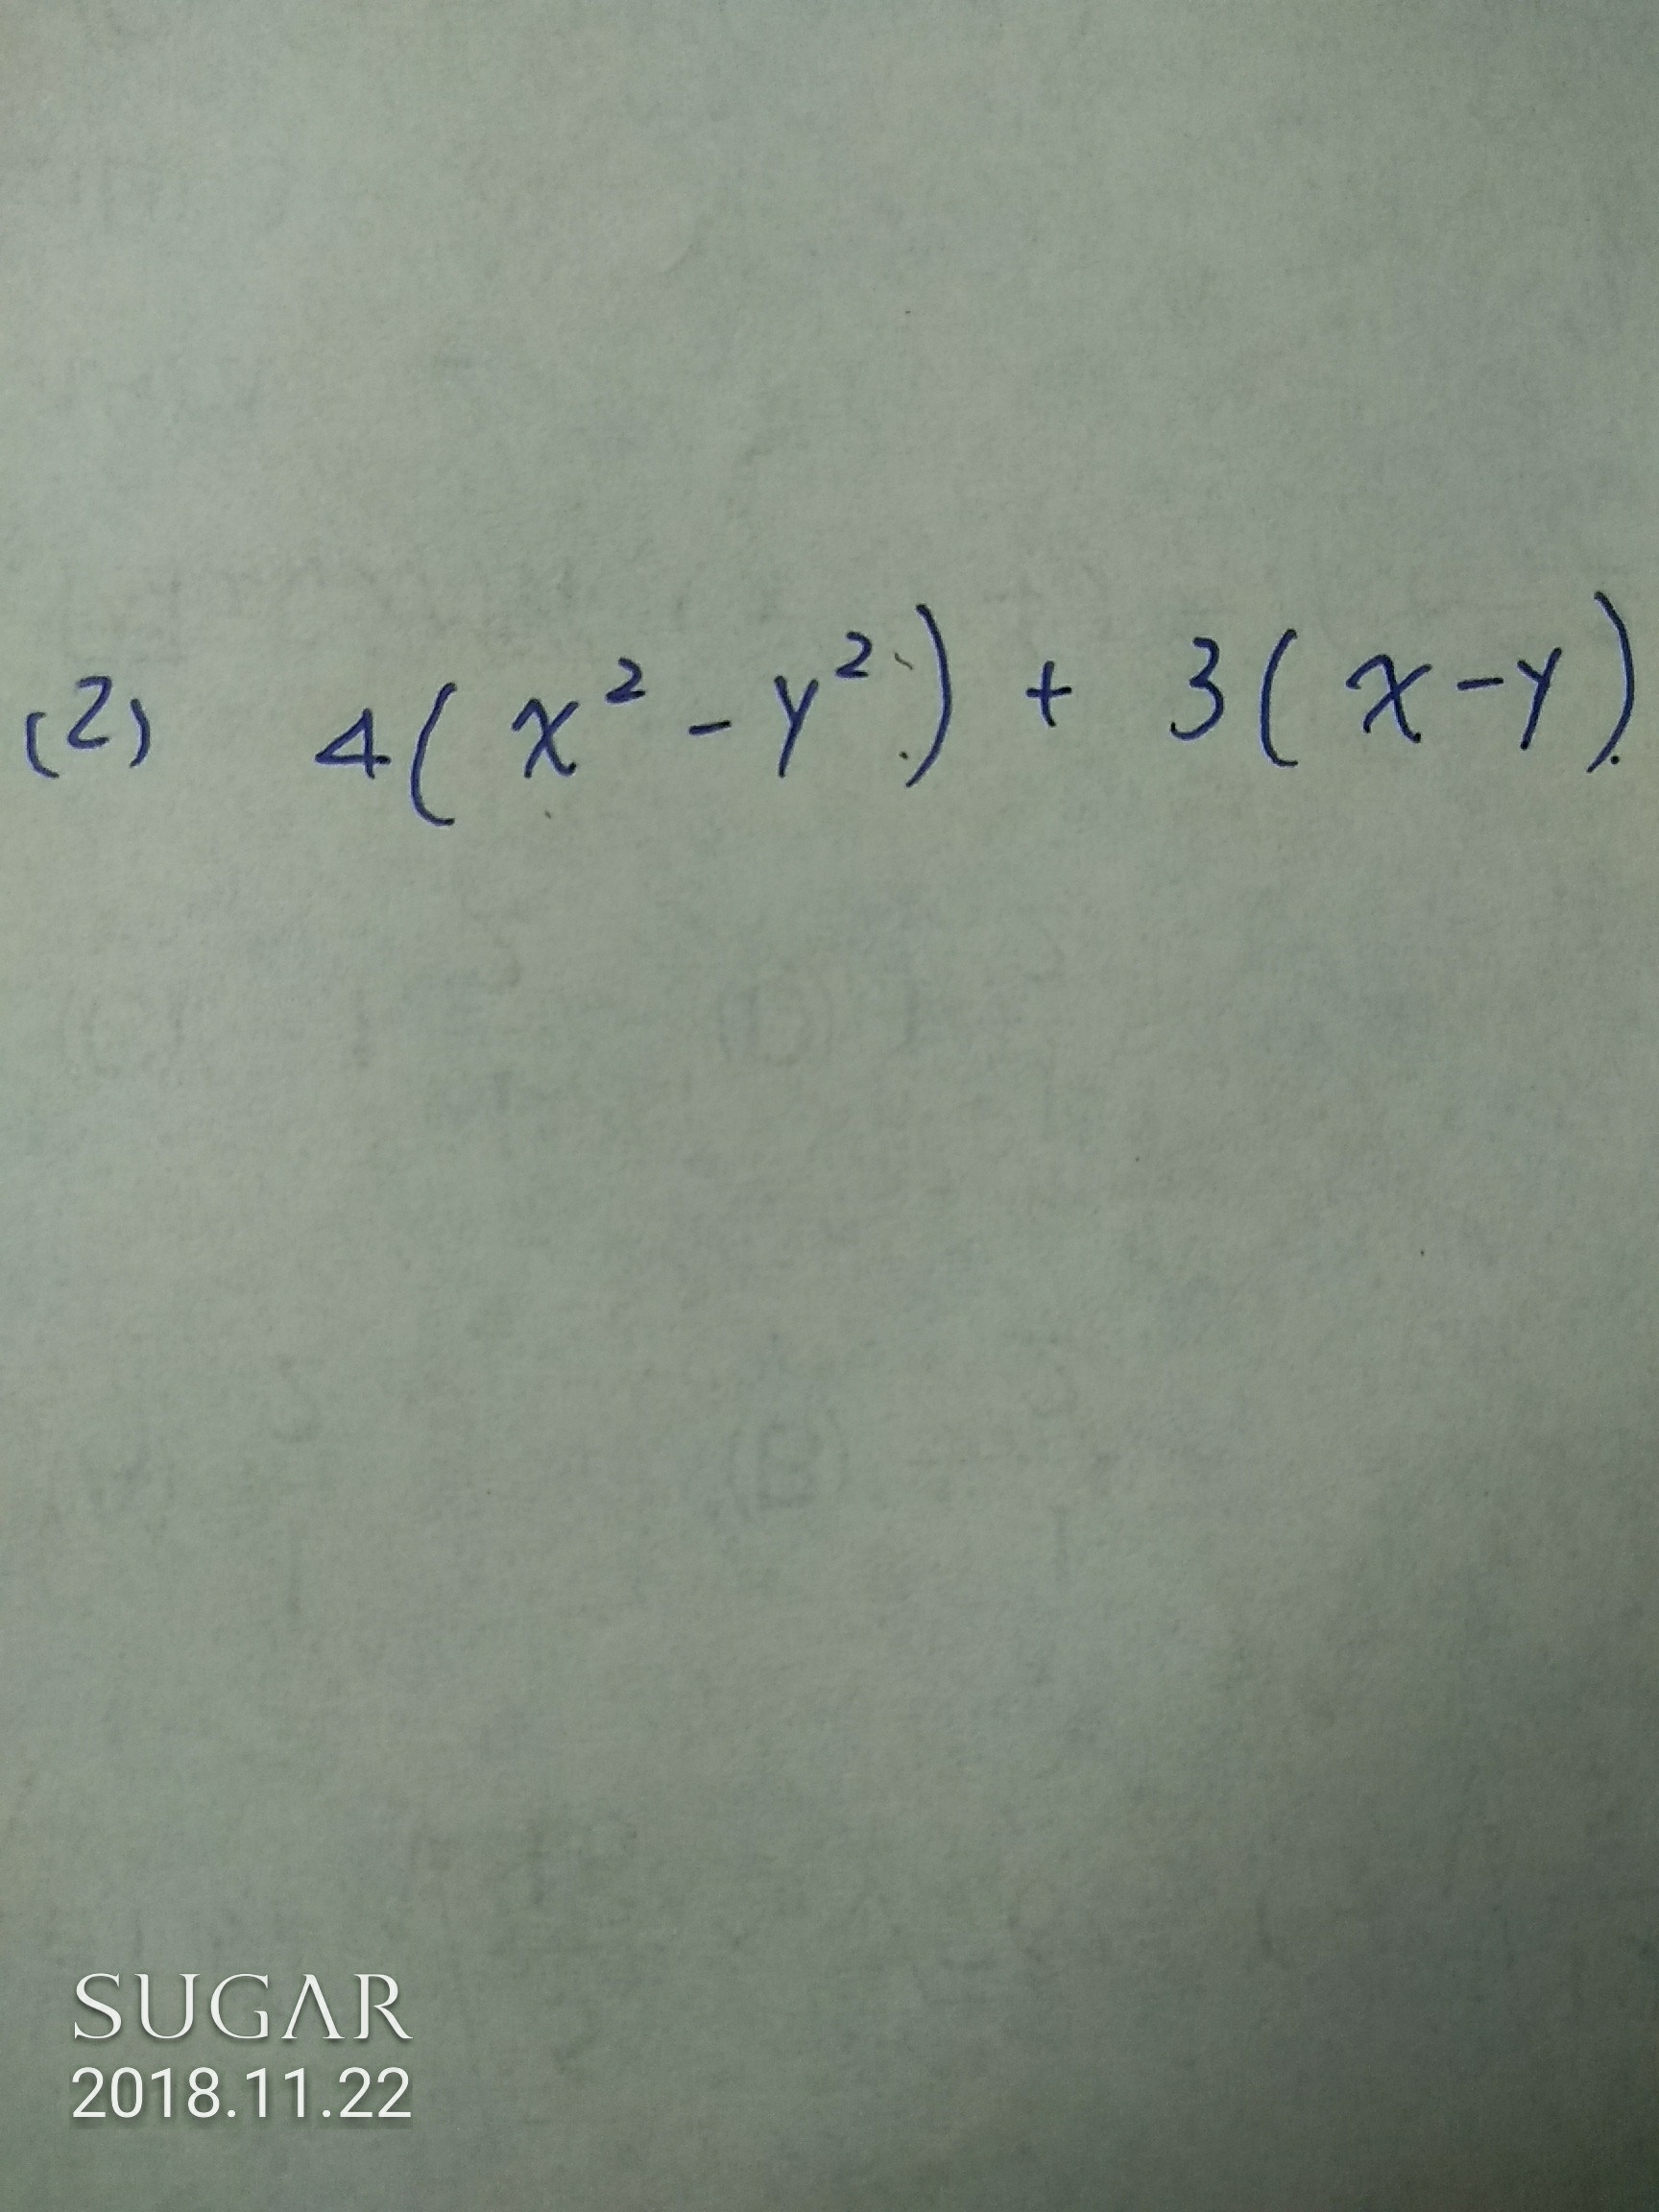 (2) 4(x² - y²) + 3(x - y).
SUGAR
2018.11.22